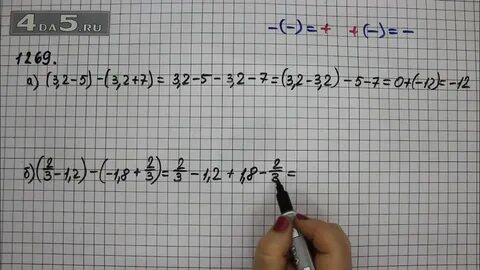 4DA5.RU
-(-)=+ +(-)=-
1269.
а) (3,2-5)-(3,2+7)= 3,2-5-3,2-7=(3,2-3,2)-5-7=0+(-12)=-12
б) (2/3-1,2)-(-1,8+2/3)=2/3-1,2+1,8-2/3=